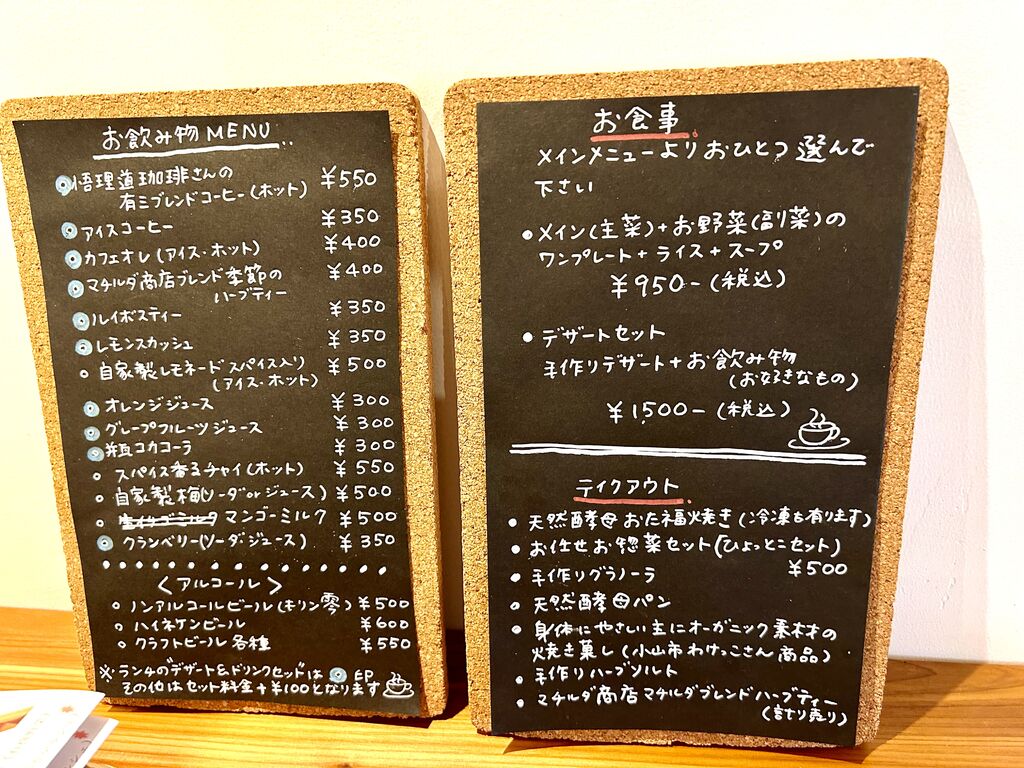 お飲み物 MENU
悟理道珈琲さんの ¥550
有ミブレンドコーヒー(ホット)
アイスコーヒー ¥350
カフェオレ(アイス・ホット) ¥400
マチルダ商店ブレンド季節の ¥400
ハーブティー
ルイボスティー ¥350
レモンスカッシュ ¥350
自家製レモネードスパイス入り ¥500
(アイス・ホット)
オレンジジュース ¥300
グレープフルーツジュース ¥300
コカコーラ ¥300
スパイス香るチャイ(ホット) ¥550
自家製梅(ソーダorジュース) ¥500
マンゴーミルク ¥500
クランベリー(ソーダジュース) ¥350
<アルコール>
ノンアルコールビール(キリン零) ¥500
ハイネケンビール ¥600
クラフトビール各種 ¥550
※ランチのデザート&ドリンクセットは◎印
その他はセット料金+¥100となります
お食事
メインメニューよりおひとつ選んで
下さい
・メイン(主菜)+お野菜(副菜)の
ワンプレート+ライス+スープ
¥950-(税込)
・デザートセット
手作りデザート+お飲み物
(お好きなもの)
¥1,500-(税込)
テイクアウト
・天然酵母おた福焼き(冷凍も有ります)
・お任せお惣菜セット(ひょっとこセット)
¥500
・手作りグラノーラ
・天然酵母パン
・身体にやさしい主にオーガニック素材の
焼き菓し(小山市わけっこさん商品)
・手作りハーブソルト
・マチルダ商店マチルダブレンドハーブティー
(計り売り)